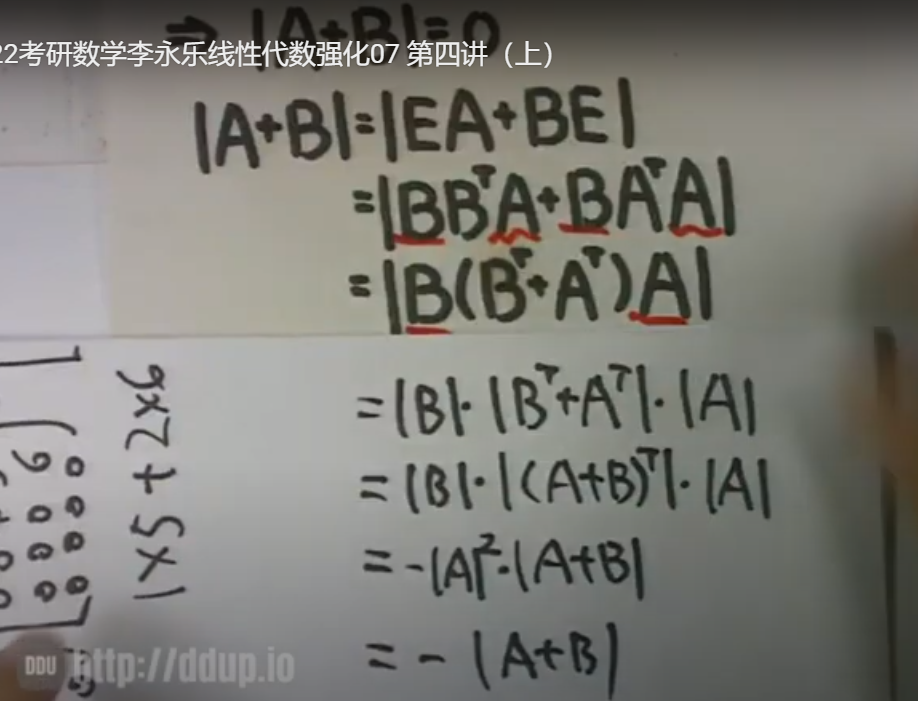 ⇒ |A+B|=0
22考研数学李永乐线性代数强化07 第四讲（上）
|A+B|=|EA+BE|
=|BBᵀA+BAᵀA|
=|B(Bᵀ+Aᵀ)A|
=|B|·|Bᵀ+Aᵀ|·|A|
=|B|·|(A+B)ᵀ|·|A|
=-|A|²·|A+B|
=-|A+B|
9×2+5×1
DDU http://ddup.io